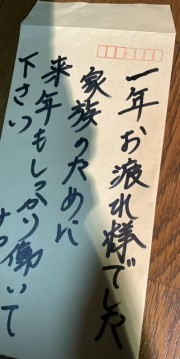 一年お疲れ様でした
家族のために
来年もしっかり働いて
下さい